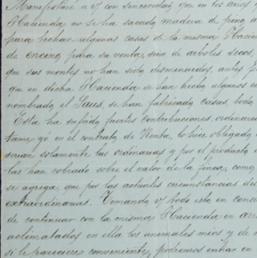 Manifestar a Vd con sinceridad que en los años
Hacienda no se ha sacado madera de pino
para hechar algunas casas de la misma Hacien
de encino para su venta, sino de arboles secos,
que sus montes no han sido desmeritados, antes
que en dicha Hacienda se han hecho algunos
nombrado el Sauz, se han fabricado casas
Esta ha sufrido fuertes contribuciones, ordinarias
en el contrato de Renta, lo hice obligado
serian solamente las ordinarias y por el producto
las han cobrado sobre el valor de la finca, como
se agrega, que por las actuales circunstancias
extraordinarias. Tomando Vd todo esto en conci
de continuar con la misma Hacienda en arr
aclimatados en ella los animales mios y de
si le pareciere conveniente, podremos entrar en